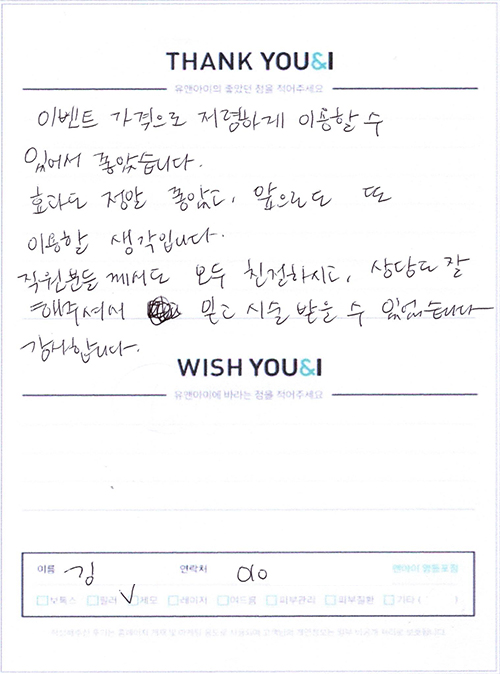 THANK YOU&I
유앤아이의 좋았던 점을 적어주세요
이벤트 가격으로 저렴하게 이용할 수
있어서 좋았습니다.
효과도 정말 좋았고, 앞으로도 또
이용할 생각입니다.
직원분들 께서도 모두 친절하시고, 상담도 잘
해주셔서 믿고 시술 받을 수 있었습니다
감사합니다.
WISH YOU&I
유앤아이에 바라는 점을 적어주세요
이름 김 연락처 010 앤아이 영등포점
보톡스 필러 제모 레이저 여드름 피부관리 피부질환 기타 ( )